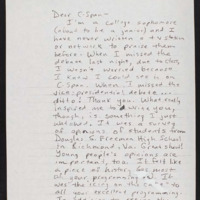 Dear C-Span -
I'm a college sophomore
(about to be a junior) and I
have never written a TV station
or network to praise them
before. When I missed the
debate last night, due to class,
I wasn't worried because
I knew I could see it on
C-Span. When I missed the
vice-presidential debate,
ditto! Thank you. What really
inspired me to write
though, is something I just
watched. It was a survey
of opinions of students from
Douglas S. Freeman High School
in Richmond, Va. Great show!
Young people's opinions are
important, too. It felt like
a piece of history. So most
of your programming is! It
was the icing on the cake to
all your excellent programming.